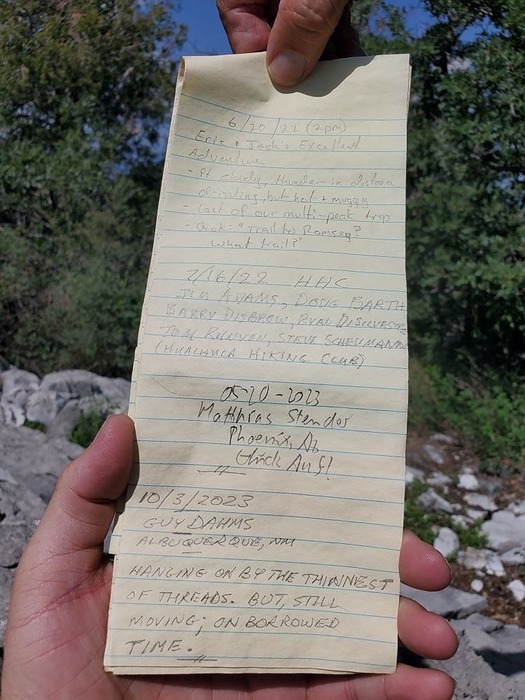 6/20/22 (2pm)
Eric + Josh's Excellent
Adventure
- Pt cloudy, thunder in distance
off-rolling, but hot + muggy
- Last of our multi-peak trip
- Quote: "Trail to Ramsey?
What trail?"
7/16/22 HHC
JIM ADAMS, DOUG BARTH
BARRY DISBROW, RYAN DISILVESTR
TOM RUNYAN, STEVE SCHEUMANN
(HUACHUCA HIKING CLUB)
05-20-2023
Matthias Stender
Phoenix, Az
Glück Auf!
10/3/2023
GUY DAHMS
ALBUQUERQUE, NM
HANGING ON BY THE THINNEST
OF THREADS. BUT, STILL
MOVING; ON BORROWED
TIME.